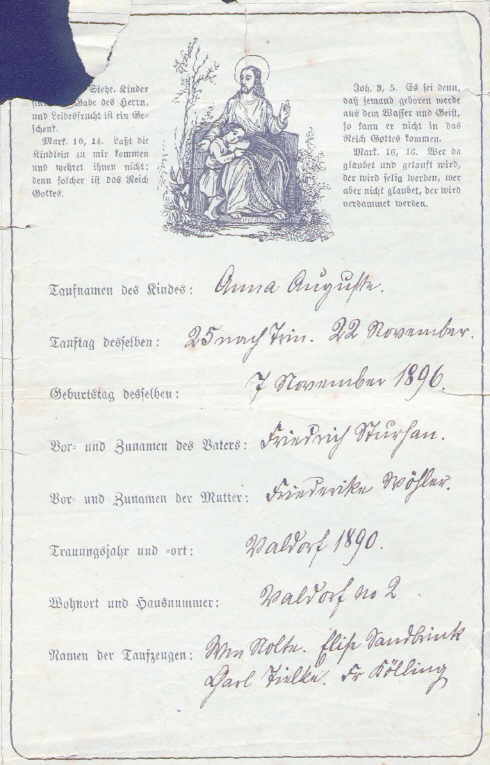 Siehe, Kinder
Gabe des Herrn,
und Leibesfrucht ist ein Ge-
schenk.
Mark. 10, 14. Laßt die
Kindlein zu mir kommen
und wehret ihnen nicht;
denn solcher ist das Reich
Gottes.
Joh. 3, 5. Es sei denn,
daß jemand geboren werde
aus dem Wasser und Geist,
so kann er nicht in das
Reich Gottes kommen.
Mark. 16, 16. Wer da
glaubet und getauft wird,
der wird selig werden, wer
aber nicht glaubet, der wird
verdammet werden.
Taufnamen des Kindes: Anna Auguste.
Tauftag desselben: 25 nach Trin. 22 November.
Geburtstag desselben: 7 November 1896.
Vor- und Zunamen des Vaters: Friedrich Sturhan.
Vor- und Zunamen der Mutter: Friederike Wöhler.
Trauungsjahr und -ort: Valdorf 1890.
Wohnort und Hausnummer: Valdorf no 2
Namen der Taufzeugen: Wm Nolte. Elise Sandbrink
Carl Tielke. Fr Kölling